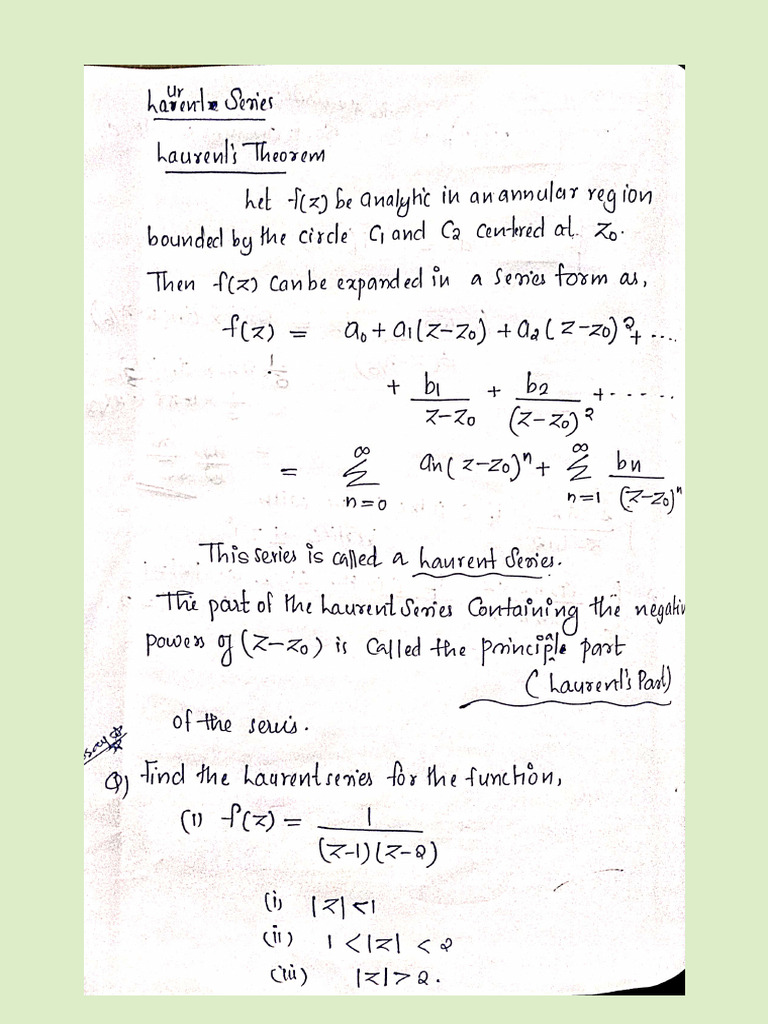 Laurent Series
Laurent's Theorem
Let f(z) be analytic in an annular region
bounded by the circle C1 and C2 centred at z0.
Then f(z) can be expanded in a series form as,
f(z) = a0 + a1(z-z0) + a2(z-z0)² + ....
+ b1/(z-z0) + b2/(z-z0)² + ......
= ∑_{n=0}^{∞} an(z-z0)ⁿ + ∑_{n=1}^{∞} bn/(z-z0)ⁿ
This series is called a Laurent Series.
The part of the Laurent Series Containing the negativ
powers of (z-z0) is called the principal part
(Laurent's Part)
of the series.
Q) Find the Laurent series for the function,
(1) f(z) = 1/((z-1)(z-2))
(i) |z|<1
(ii) 1 < |z| < 2
(iii) |z| > 2.